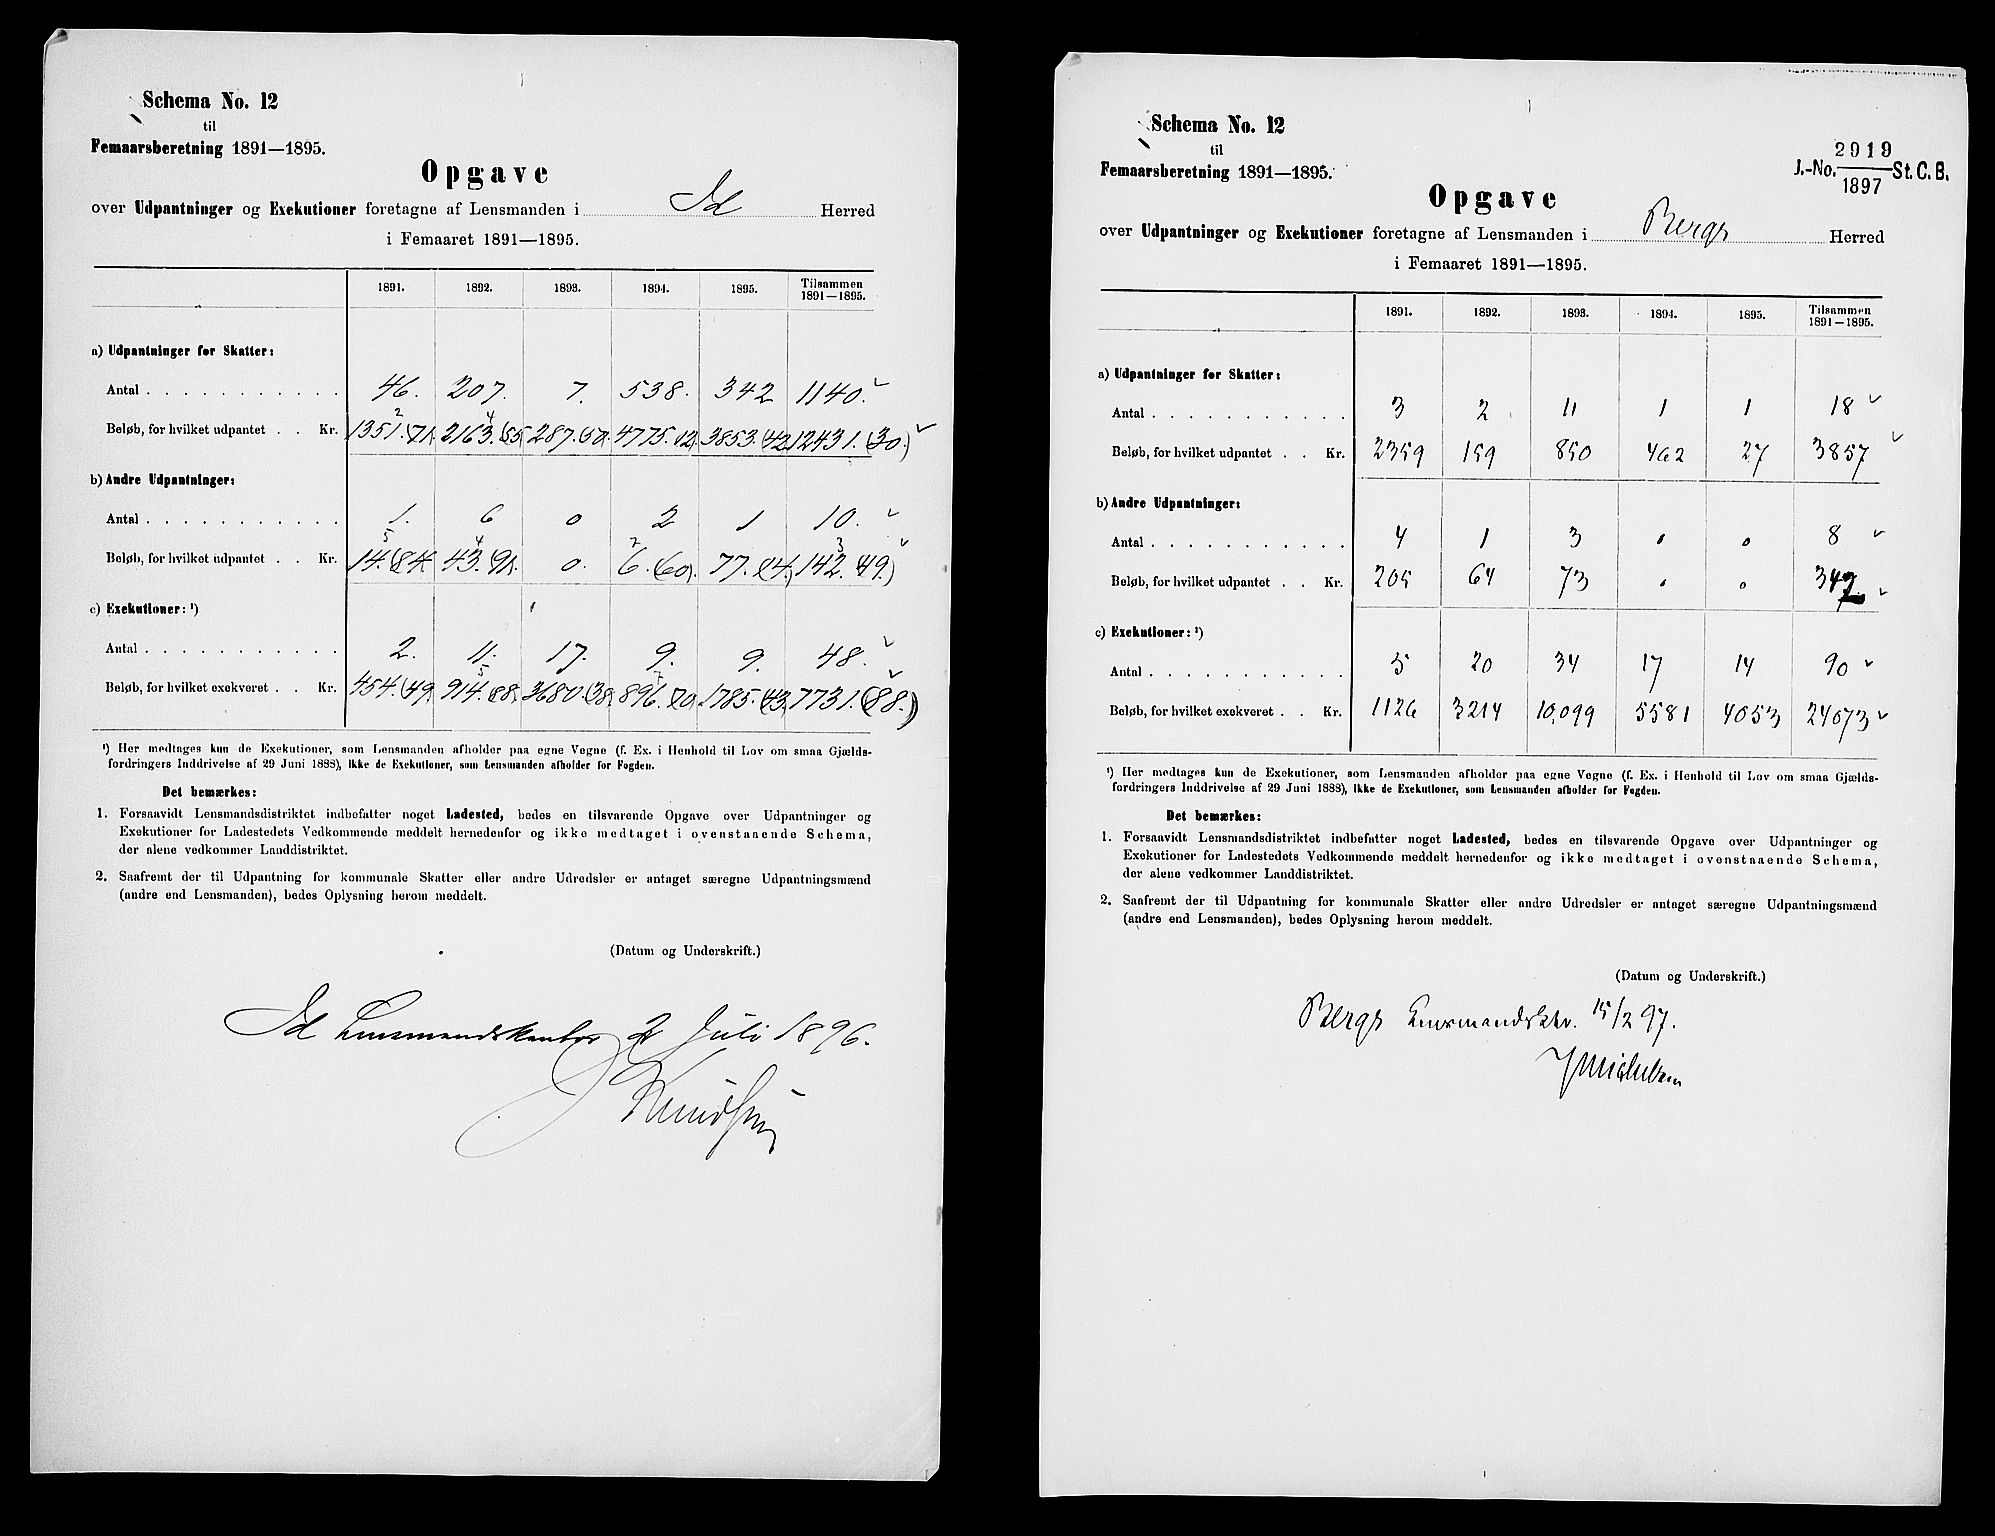 Schema No. 12
til
Femaarsberetning 1891—1895.
Opgave
over Udpantninger og Exekutioner foretagne af Lensmanden i Id Herred
i Femaaret 1891—1895.
1891. 1892. 1893. 1894. 1895. Tilsammen 1891—1895.
a) Udpantninger for Skatter:
Antal 46. 207. 7. 538. 342 1140.
Beløb, for hvilket udpantet Kr. 1351. (71) 2163. (55) 287. (50) 4775. (12) 3853. (42) 12431. (30.)
b) Andre Udpantninger:
Antal 1. 6 0 2 1 10.
Beløb, for hvilket udpantet Kr. 14. (84) 43. (91) 0. 6. (60). 77. (14) 142. (49.)
c) Exekutioner: ¹)
Antal 2. 11. 17. 9. 9. 48.
Beløb, for hvilket exekveret Kr. 454. (49) 914. (88) 3680. (38) 896. (70) 1785. (43) 7731. (88.)
¹) Her medtages kun de Exekutioner, som Lensmanden afholder paa egne Vegne (f. Ex. i Henhold til Lov om smaa Gjælds-
fordringers Inddrivelse af 29 Juni 1888), ikke de Exekutioner, som Lensmanden afholder for Fogden.
Det bemærkes:
1. Forsaavidt Lensmandsdistriktet indbefatter noget Ladested, bedes en tilsvarende Opgave over Udpantninger og
Exekutioner for Ladestedets Vedkommende meddelt hernedenfor og ikke medtaget i ovenstaaende Schema,
der alene vedkommer Landdistriktet.
2. Saafremt der til Udpantning for kommunale Skatter eller andre Udredsler er antaget særegne Udpantningsmænd
(andre end Lensmanden), bedes Oplysning herom meddelt.
(Datum og Underskrift.)
Id Lensmandskontor 2 Juli 1896.
Knudsen
Schema No. 12
til
Femaarsberetning 1891—1895.
J.-No. 2919/1897 St. C. B.
Opgave
over Udpantninger og Exekutioner foretagne af Lensmanden i Bergs Herred
i Femaaret 1891—1895.
1891. 1892. 1893. 1894. 1895. Tilsammen 1891—1895.
a) Udpantninger for Skatter:
Antal 3 2 11 1 1 18
Beløb, for hvilket udpantet Kr. 2359 159 850 462 27 3857
b) Andre Udpantninger:
Antal 4 1 3 0 0 8
Beløb, for hvilket udpantet Kr. 205 64 73 0 0 342
c) Exekutioner: ¹)
Antal 5 20 34 17 14 90
Beløb, for hvilket exekveret Kr. 1126 3214 10,099 5581 4053 24073
¹) Her medtages kun de Exekutioner, som Lensmanden afholder paa egne Vegne (f. Ex. i Henhold til Lov om smaa Gjælds-
fordringers Inddrivelse af 29 Juni 1888), ikke de Exekutioner, som Lensmanden afholder for Fogden.
Det bemærkes:
1. Forsaavidt Lensmandsdistriktet indbefatter noget Ladested, bedes en tilsvarende Opgave over Udpantninger og
Exekutioner for Ladestedets Vedkommende meddelt hernedenfor og ikke medtaget i ovenstaaende Schema,
der alene vedkommer Landdistriktet.
2. Saafremt der til Udpantning for kommunale Skatter eller andre Udredsler er antaget særegne Udpantningsmænd
(andre end Lensmanden), bedes Oplysning herom meddelt.
(Datum og Underskrift.)
Bergs Lensmandsktr. 15/2 97.